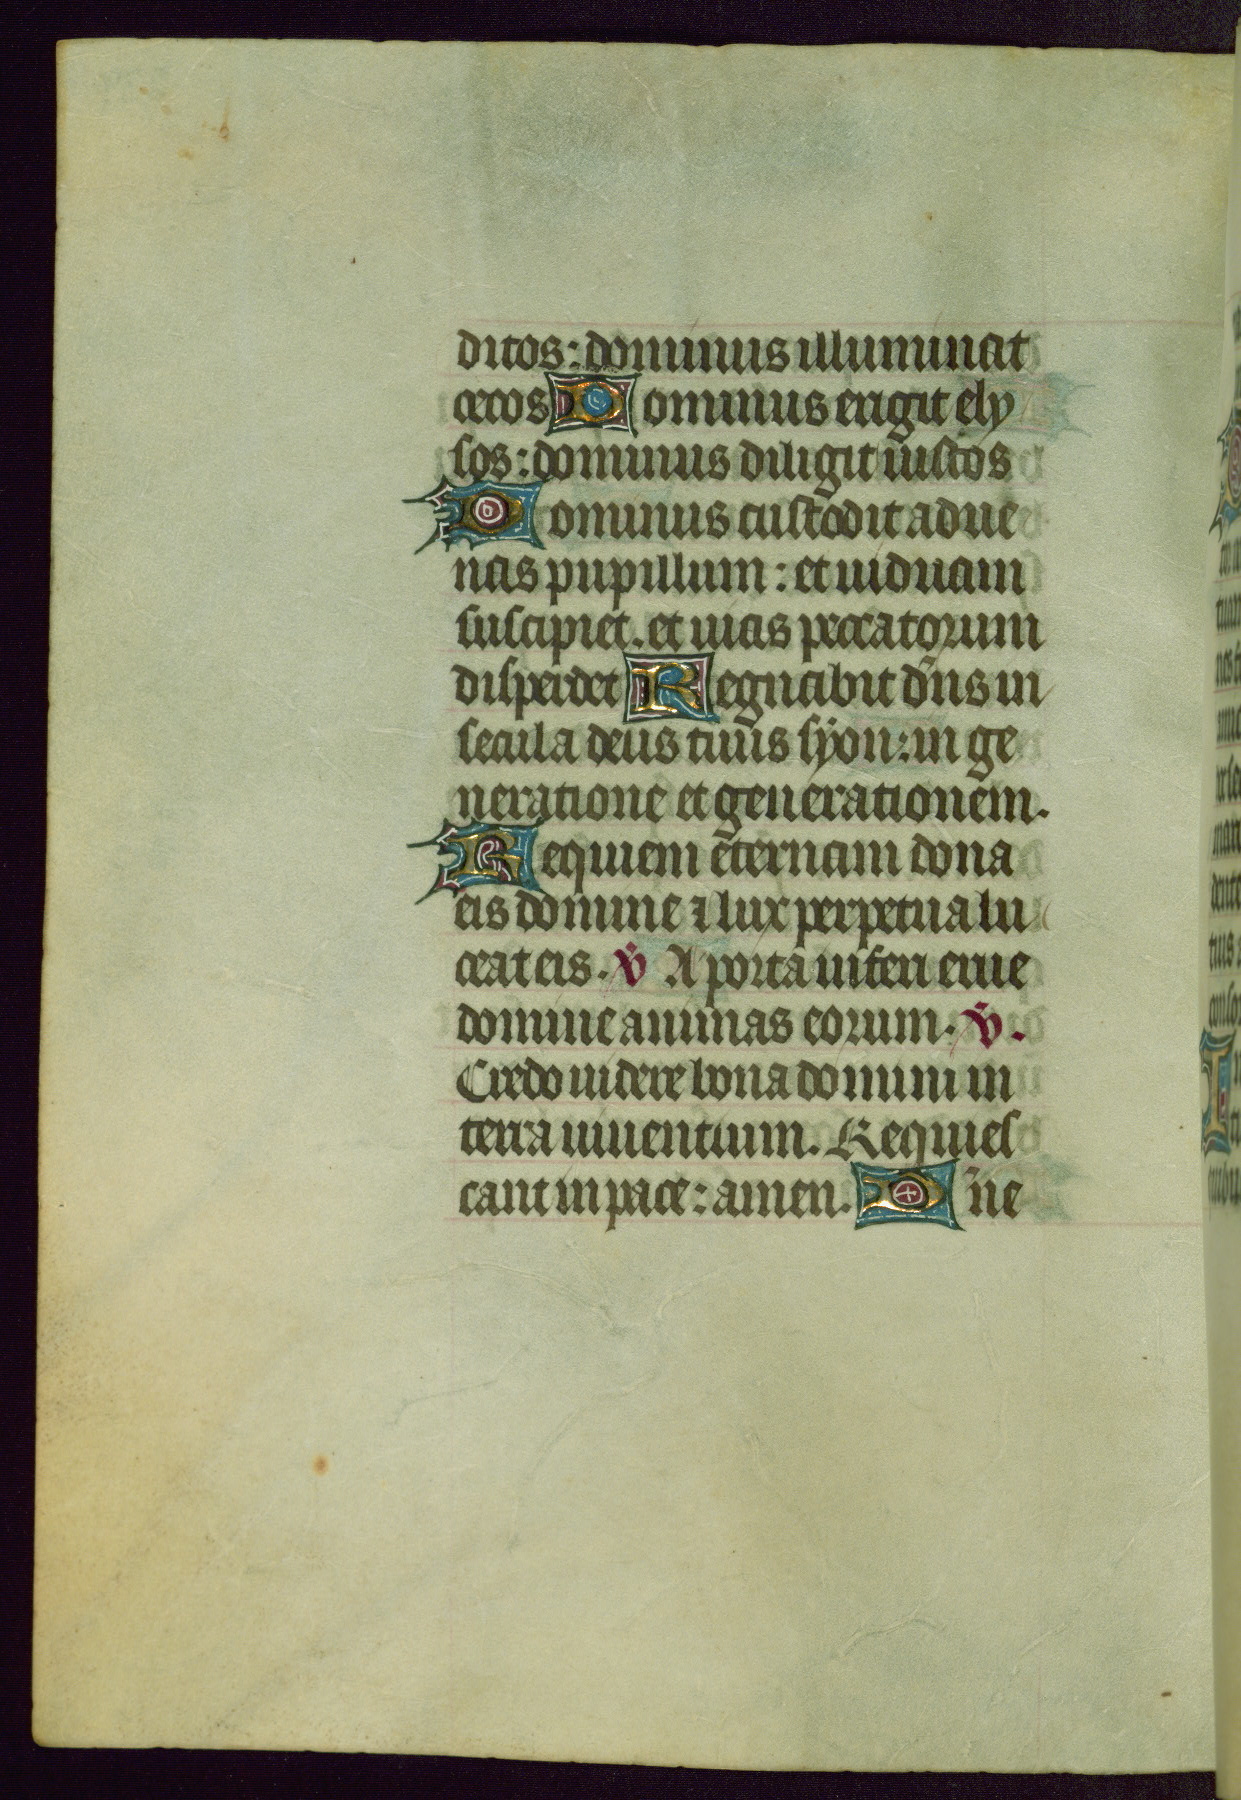 ditos: dominus illuminat
cecos Dominus erigit ely
sos: dominus diligit iustos
Dominus custodit adue
nas pupillum: et uiduam
suscipiet. et uias peccatorum
disperdet Regnabit dn̄s in
secula deus tuus syon: in ge
neratione et generationem.
Requiem eternam dona
eis domine ⁊ lux perpetua lu
ceat eis. v̄ A porta inferi erue
domine animas eorum. v̄.
Credo uidere bona domini in
terra uiuentium. Requies
cant in pace: amen. Dn̄e